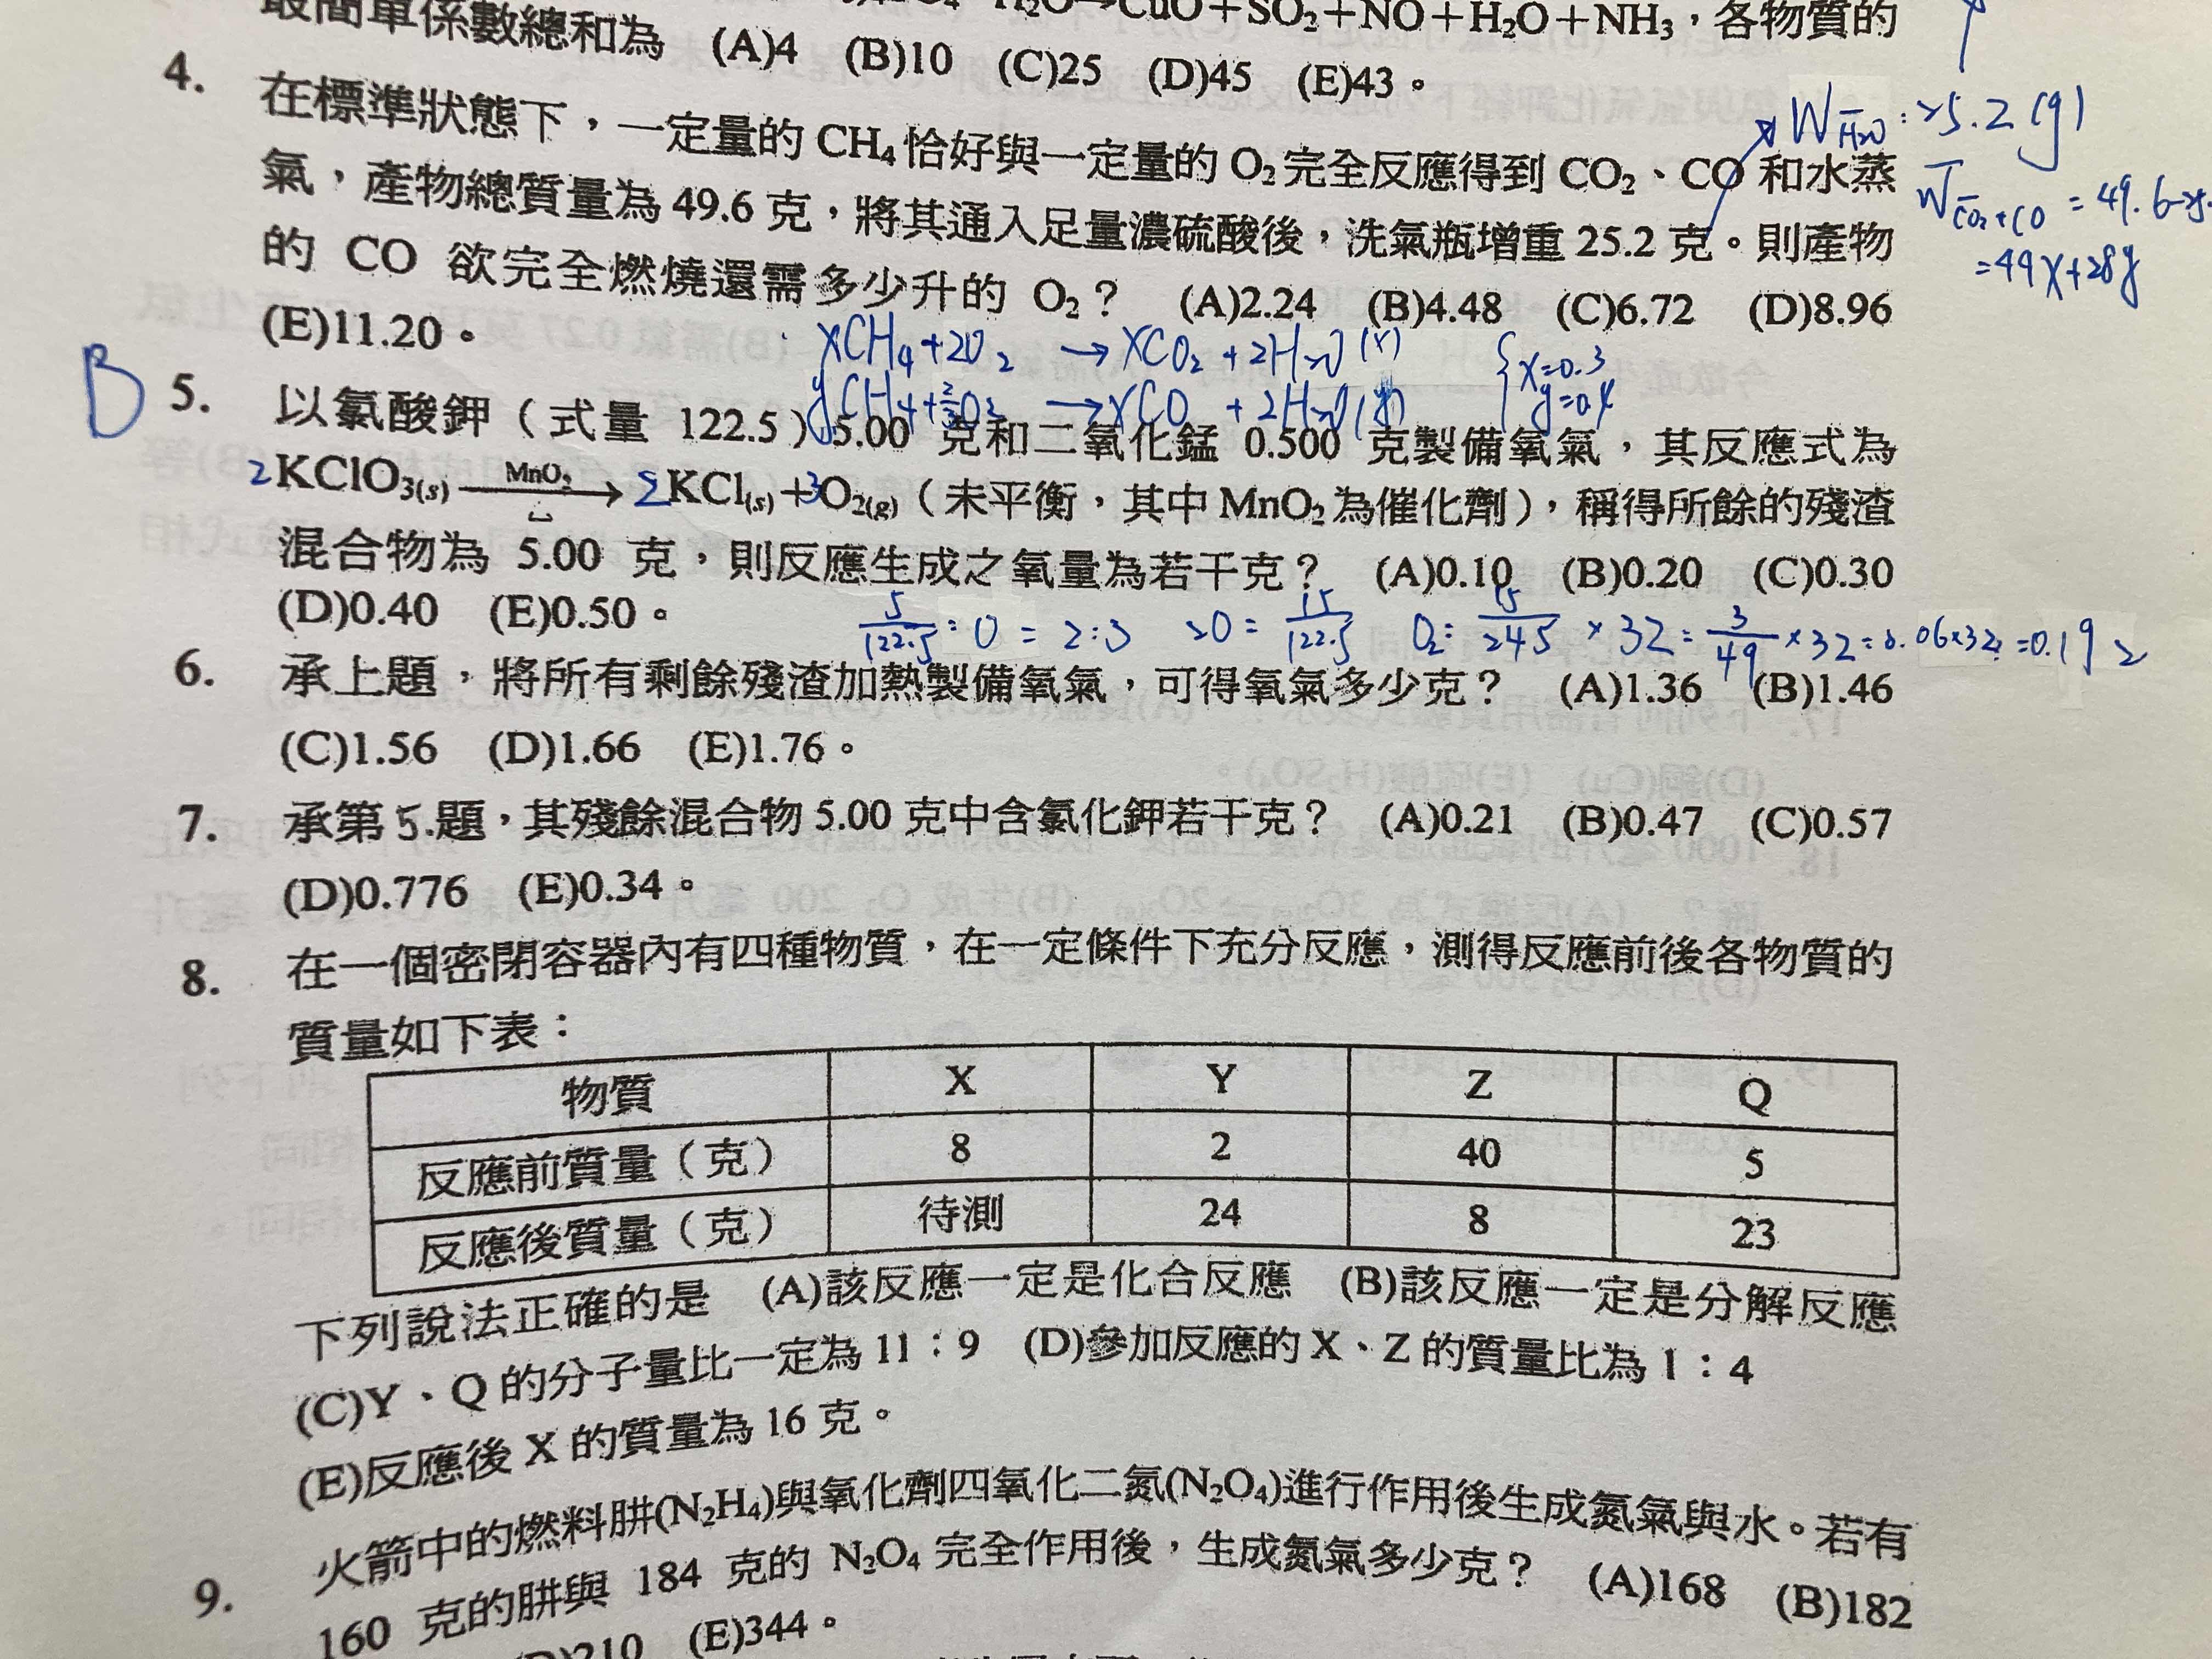 H₂O→CuO+SO₂+NO+H₂O+NH₃,各物質的
最簡單係數總和為 (A)4 (B)10 (C)25 (D)45 (E)43。
4. 在標準狀態下,一定量的 CH₄ 恰好與一定量的 O₂ 完全反應得到 CO₂、CO 和水蒸
氣,產物總質量為 49.6 克,將其通入足量濃硫酸後,洗氣瓶增重 25.2 克。則產物
的 CO 欲完全燃燒還需多少升的 O₂? (A)2.24 (B)4.48 (C)6.72 (D)8.96
(E)11.20。
W H₂O : 25.2 (g)
W CO₂+CO = 49.6-25.
=44x+28y
xCH₄+2O₂ → xCO₂+2H₂O (x)
yCH₄+ O₂ → xCO +2H₂O (y)
{ x=0.3
y=0.4
B
5. 以氯酸鉀(式量 122.5)5.00 克和二氧化錳 0.500 克製備氧氣,其反應式為
2KClO₃(s) MnO₂→ 2KCl(s)+3O₂(g)(未平衡,其中 MnO₂ 為催化劑),稱得所餘的殘渣
混合物為 5.00 克,則反應生成之氧量為若干克? (A)0.10 (B)0.20 (C)0.30
(D)0.40 (E)0.50。
5/122.5 : O = 2:3 2O = 15/122.5 O₂= 15/245 × 32 = 3/49 × 32 = 0.06×32 = 0.192
6. 承上題,將所有剩餘殘渣加熱製備氧氣,可得氧氣多少克? (A)1.36 (B)1.46
(C)1.56 (D)1.66 (E)1.76。
7. 承第5.題,其殘餘混合物 5.00 克中含氯化鉀若干克? (A)0.21 (B)0.47 (C)0.57
(D)0.776 (E)0.34。
8. 在一個密閉容器內有四種物質,在一定條件下充分反應,測得反應前後各物質的
質量如下表:
物質 X Y Z Q
反應前質量(克) 8 2 40 5
反應後質量(克) 待測 24 8 23
下列說法正確的是 (A)該反應一定是化合反應 (B)該反應一定是分解反應
(C)Y、Q 的分子量比一定為 11:9 (D)參加反應的 X、Z 的質量比為 1:4
(E)反應後 X 的質量為 16 克。
9. 火箭中的燃料肼(N₂H₄)與氧化劑四氧化二氮(N₂O₄)進行作用後生成氮氣與水。若有
160 克的肼與 184 克的 N₂O₄ 完全作用後,生成氮氣多少克? (A)168 (B)182
(D)210 (E)344。